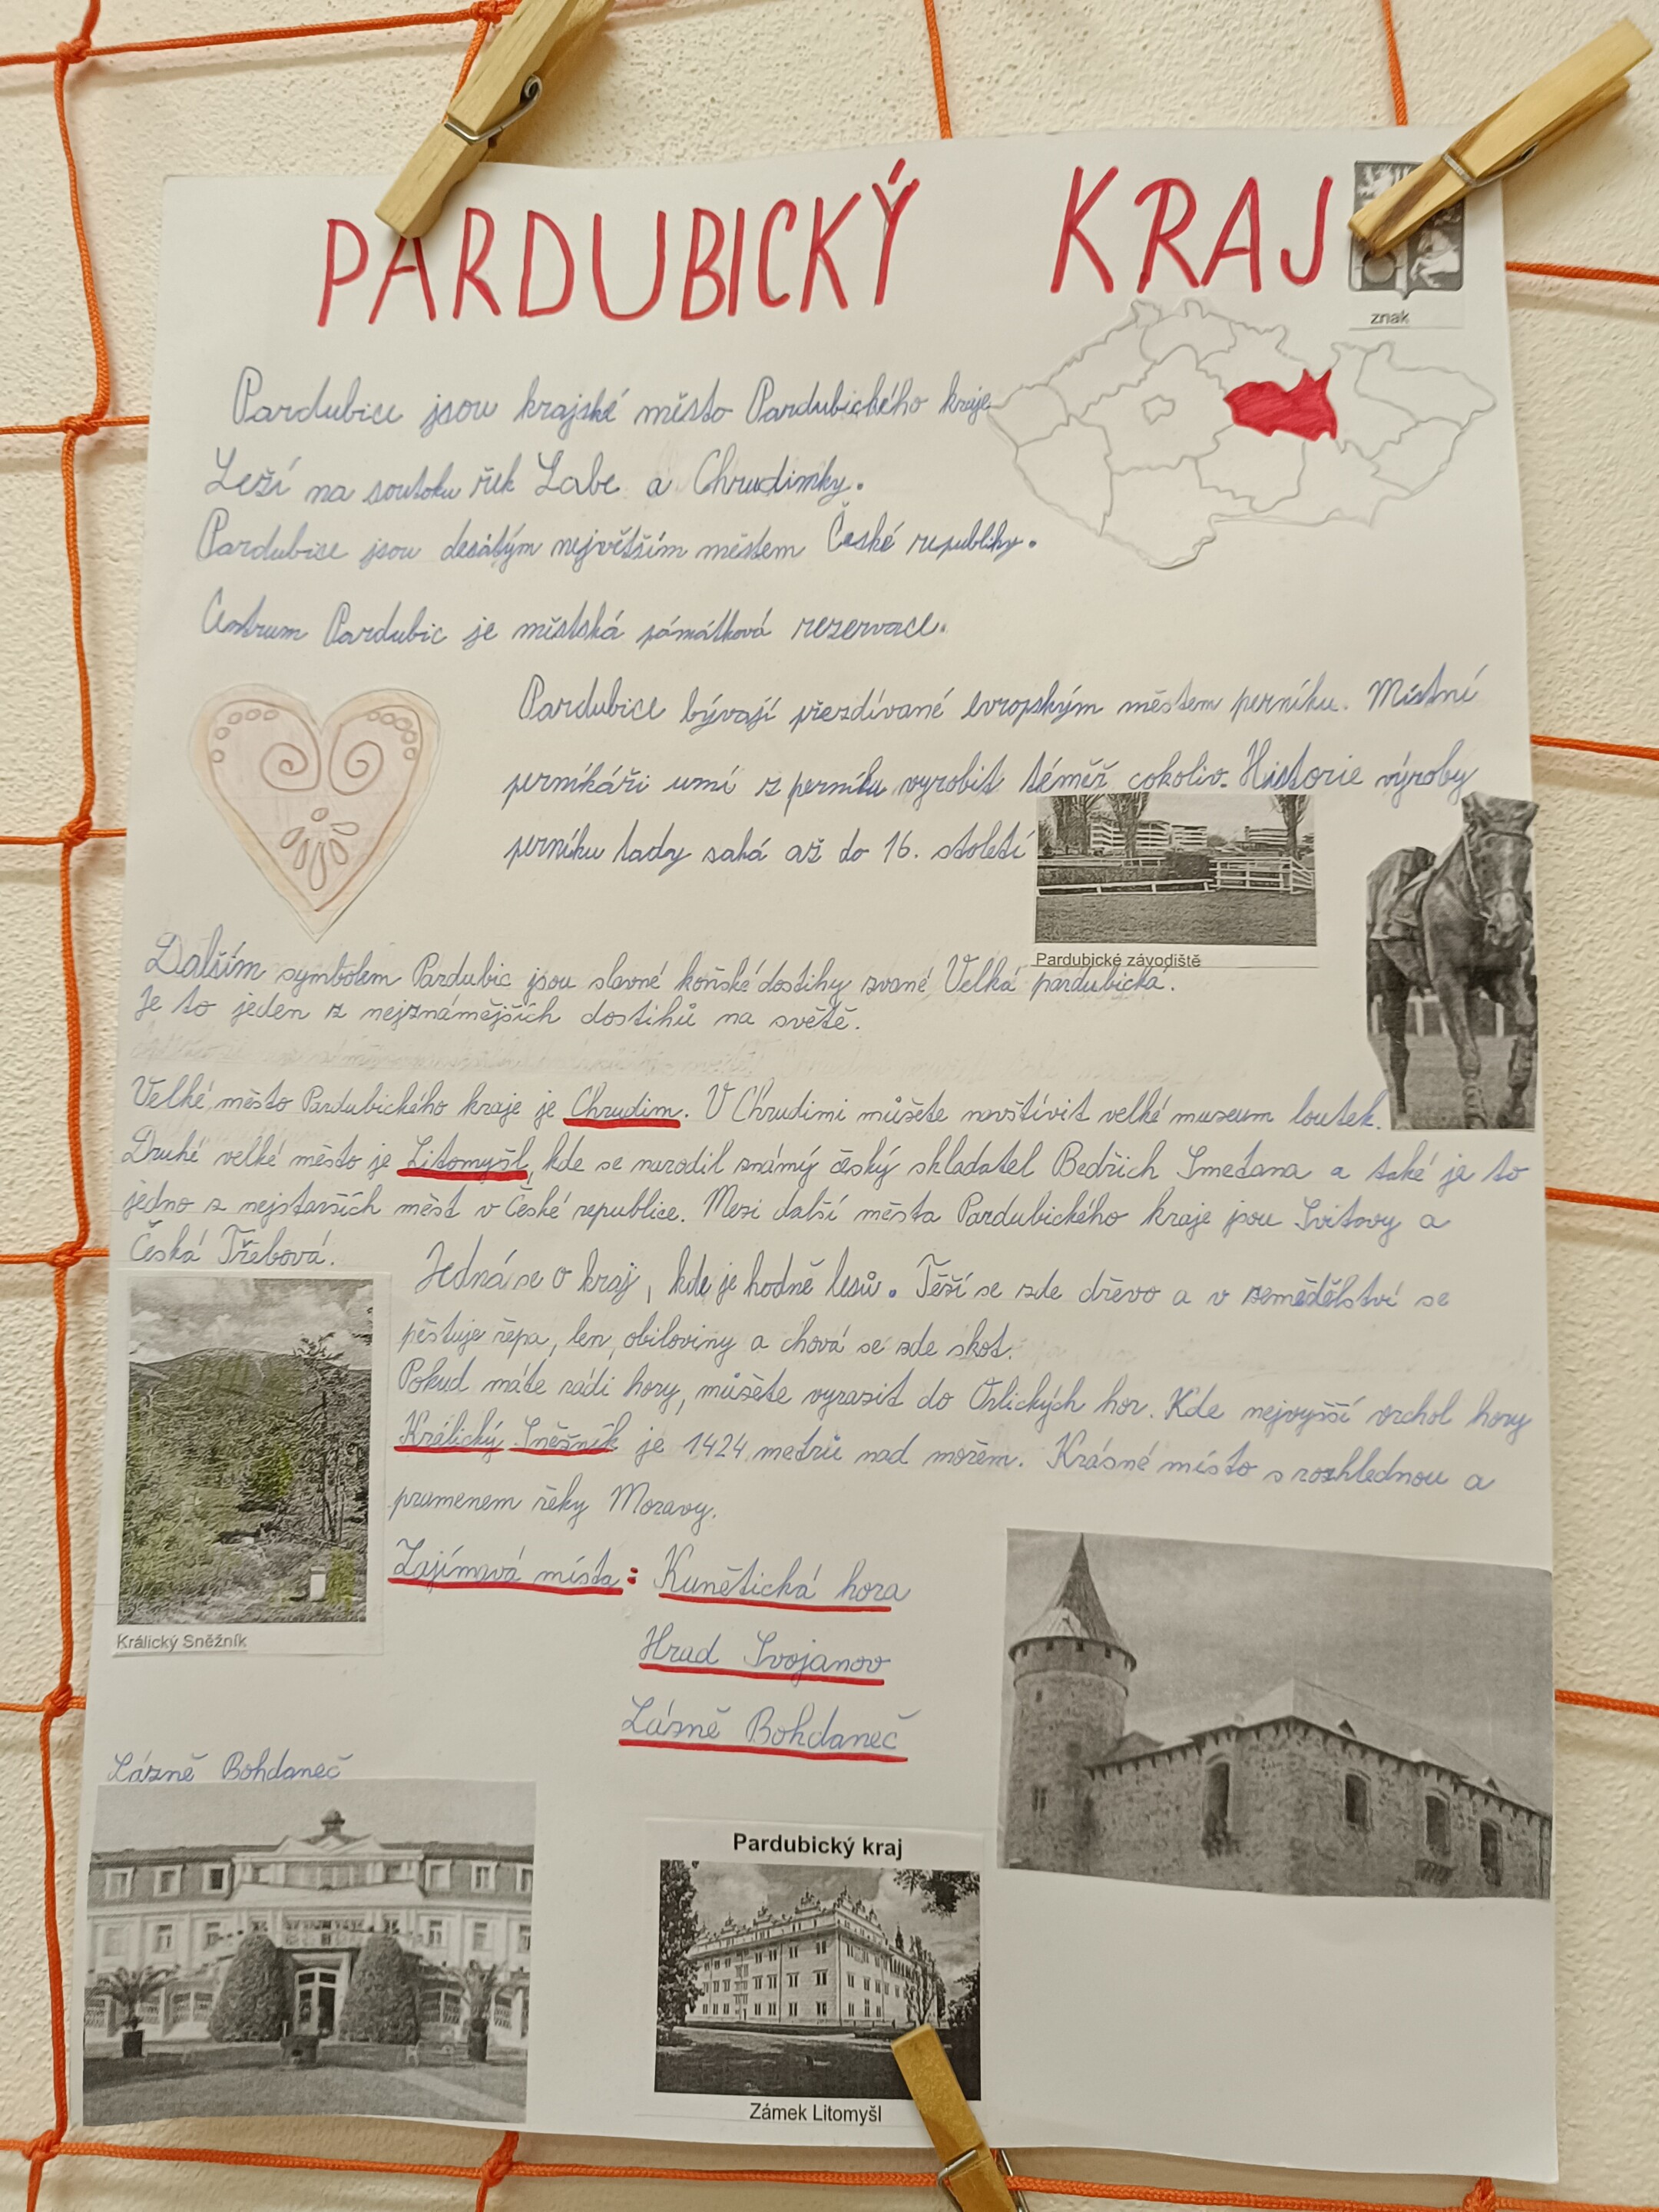 PARDUBICKÝ KRAJ
znak
Pardubice jsou krajské město Pardubického kraje
Leží na soutoku řek Labe a Chrudimky.
Pardubice jsou desátým největším městem České republiky.
Centrum Pardubic je městská památková rezervace.
Pardubice bývají přezdívané evropským městem perníku. Místní
perníkáři umí z perníku vyrobit téměř cokoliv. Historie výroby
perníku tady sahá až do 16. století
Pardubické závodiště
Dalším symbolem Pardubic jsou slavné koňské dostihy zvané Velká pardubická.
Je to jeden z nejznámějších dostihů na světě.
Velké město Pardubického kraje je Chrudim. V Chrudimi můžete navštívit velké museum loutek.
Druhé velké město je Litomyšl, kde se narodil známý český skladatel Bedřich Smetana a také je to
jedno z nejstarších měst v České republice. Mezi další města Pardubického kraje jsou Svitavy a
Česká Třebová.
Jedná se o kraj, kde je hodně lesů. Těží se zde dřevo a v zemědělství se
pěstuje řepa, len, obiloviny a chová se zde skot.
Pokud máte rádi hory, můžete vyrazit do Orlických hor. Kde nejvyšší vrchol hory
Králický Sněžník je 1424 metrů nad mořem. Krásné místo s rozhlednou a
pramenem řeky Moravy.
Králický Sněžník
Zajímavá místa: Kunětická hora
Hrad Svojanov
Lázně Bohdaneč
Lázně Bohdaneč
Pardubický kraj
Zámek Litomyšl